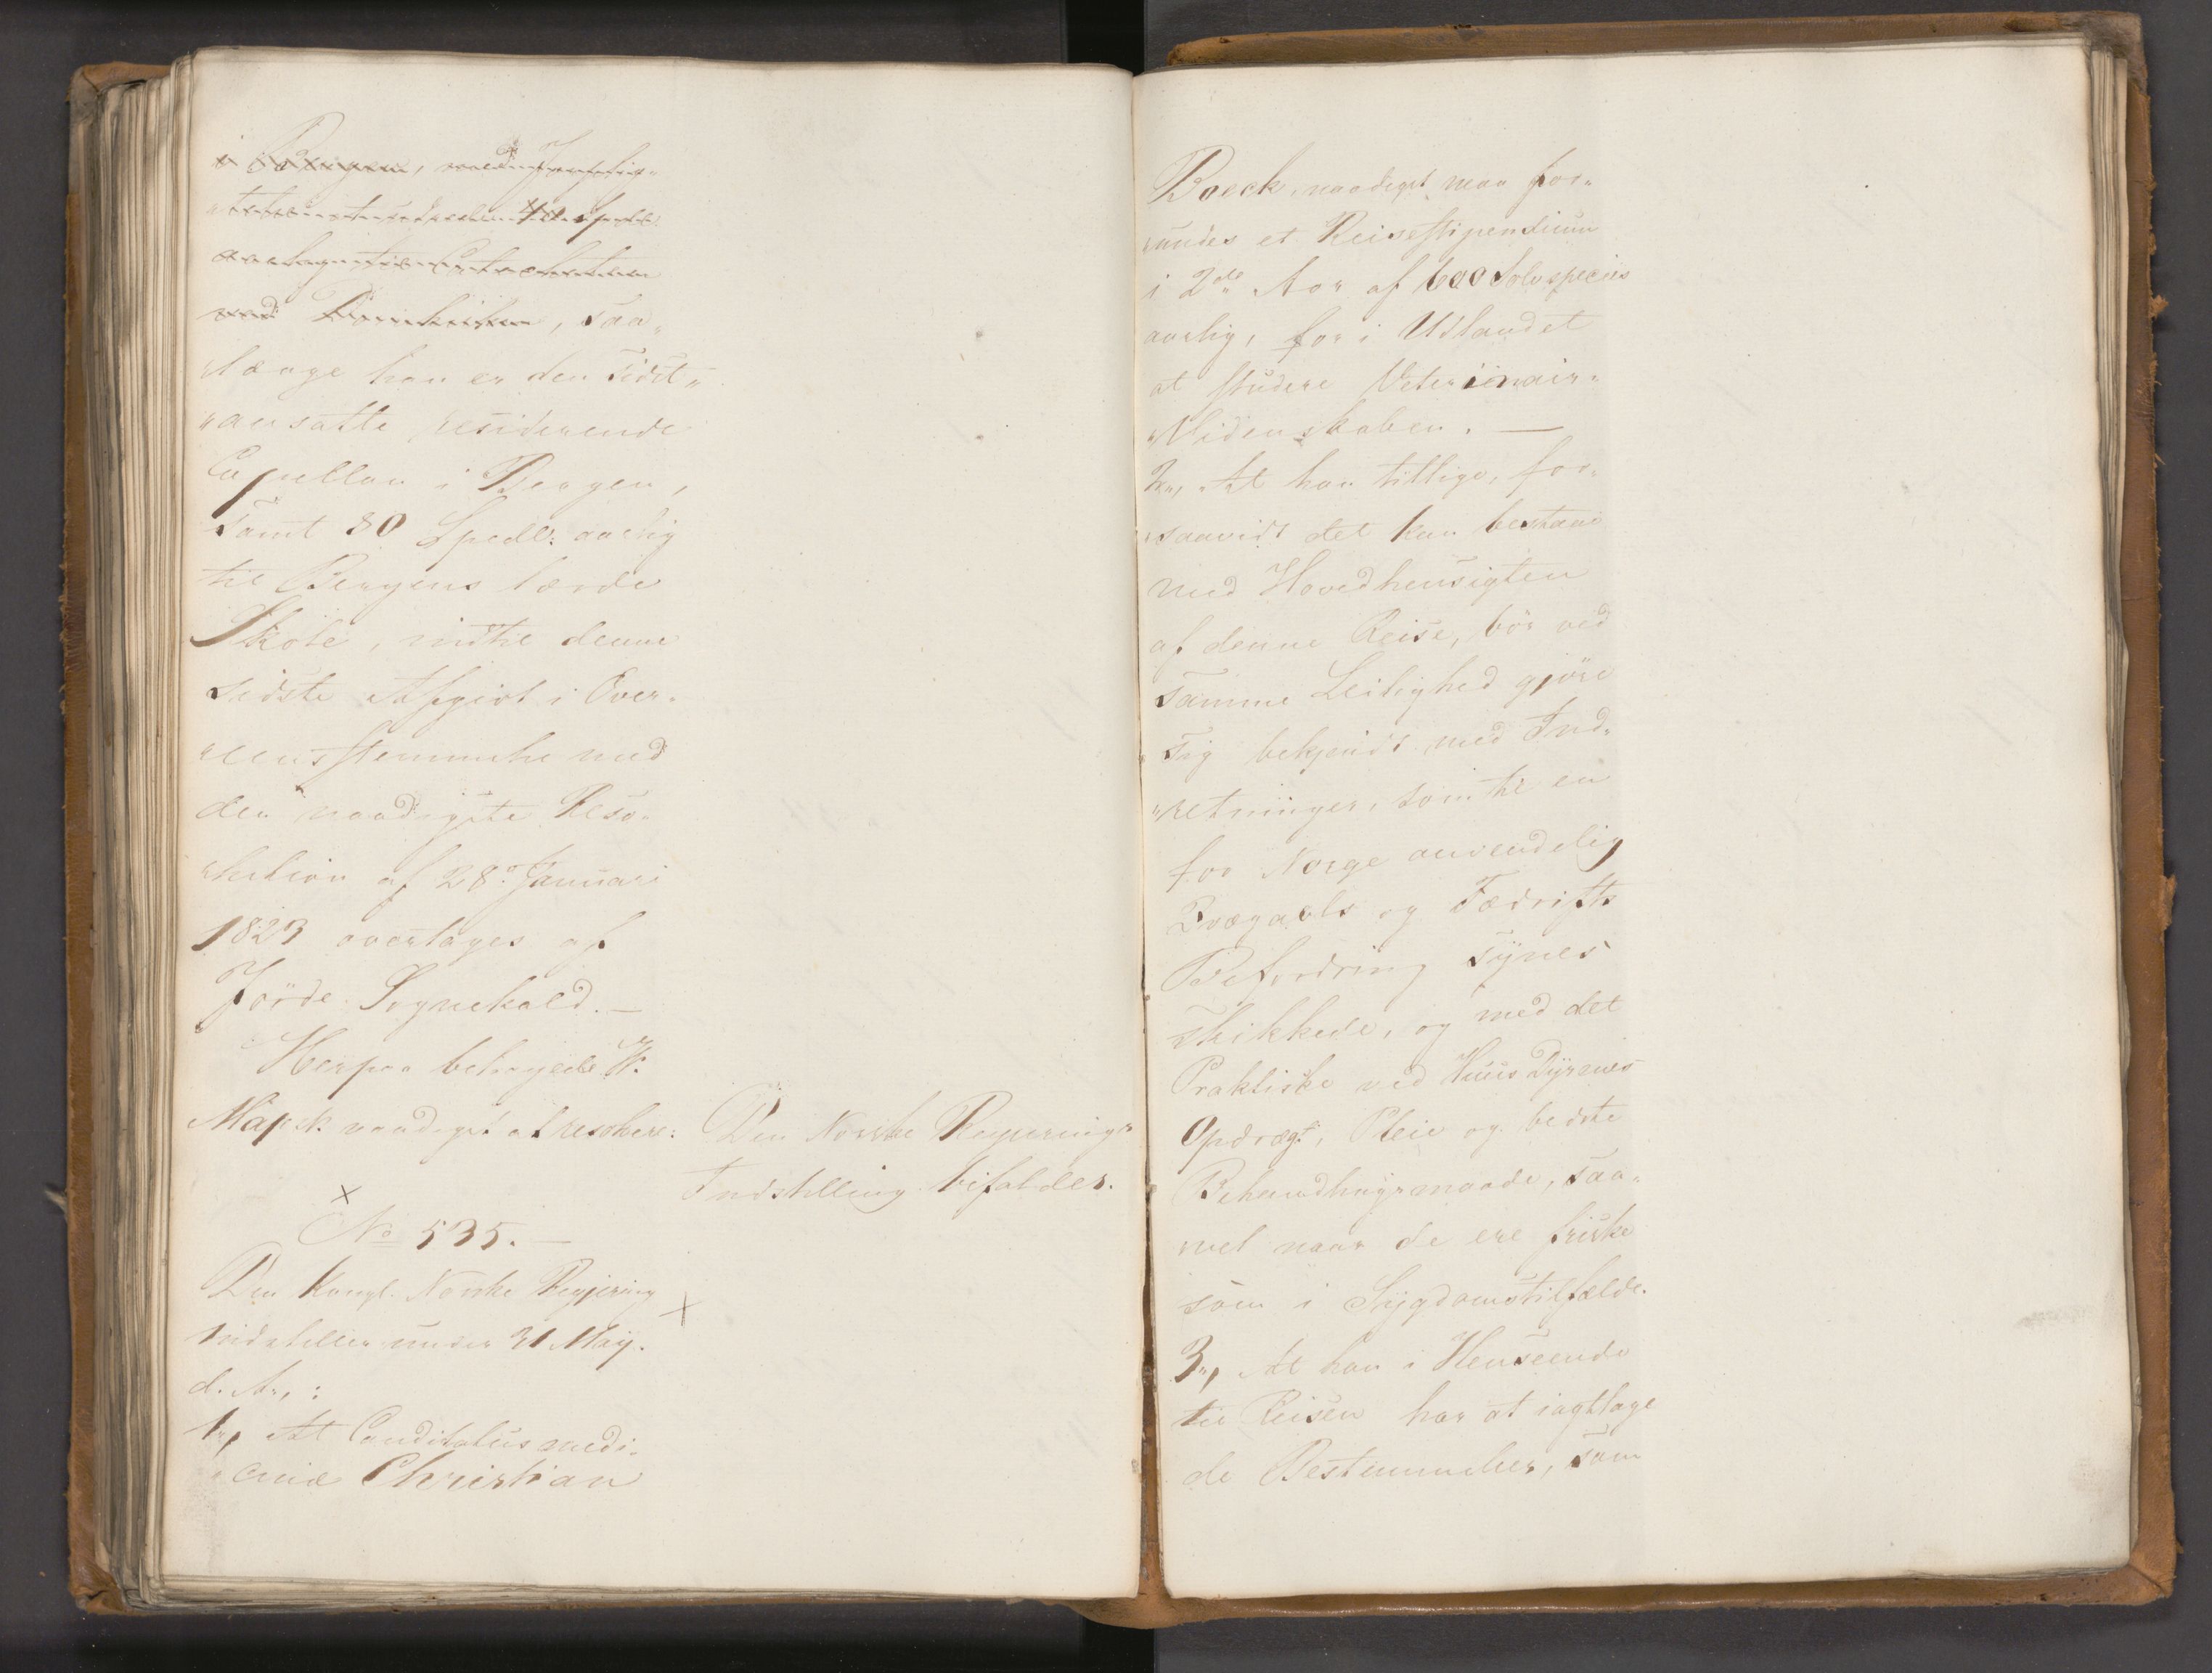 i Bergen, 
 40 Spdlr
aarlig til Catecheten
ved Domkirken, saa„
„længe han er den sidst„
„ansatte residerende
Capellan i Bergen,
samt 80 Spedlr. aarlig
til Bergens lærde
Skole, indtil denne
sidste Afgivt i Over„
„eensstemmelse med
den naadigste Reso„
„lution af 28de Januari
1823 overtages af
Förde Sognekald. —
Herpaa behagede H.
Majst. naadigst at resolvere:
Den Norske Regjerings
Indstilling bifaldes.
×
No 535. —
Den Kongl. Norske Regjering
×
indstiller under 31 Maÿ.
d. A., :
1„, At Canditatus medi„
„cinæ Christian
Boeck, naadigst maa for„
„undes et Reisestipendium
i 2de Aar af 600 Sölvspecies
aarlig, for i Udlandet
at studere Veterinair„
„Videnskaben. —
2„, At han tillige, for„
„saavidt det kan bestaae
med Hovedhensigten
af denne Reise, bör ved
samme Leilighed gjöre
sig bekjendt med Ind„
„retninger, som til en
for Norge anvendelig
Qvægavls og Fædrifts
Befordring sÿnes
skikkede, og med det
Praktiske ved HuusDÿrenes
Opdrægt, Pleie og bedste
Behandlingsmaade, saa„
„vel naar de ere friske
som i Sÿgdomstilfælde.
3„, At han i Henseende
til Reisen har at iagttage
de Bestemmelser, som